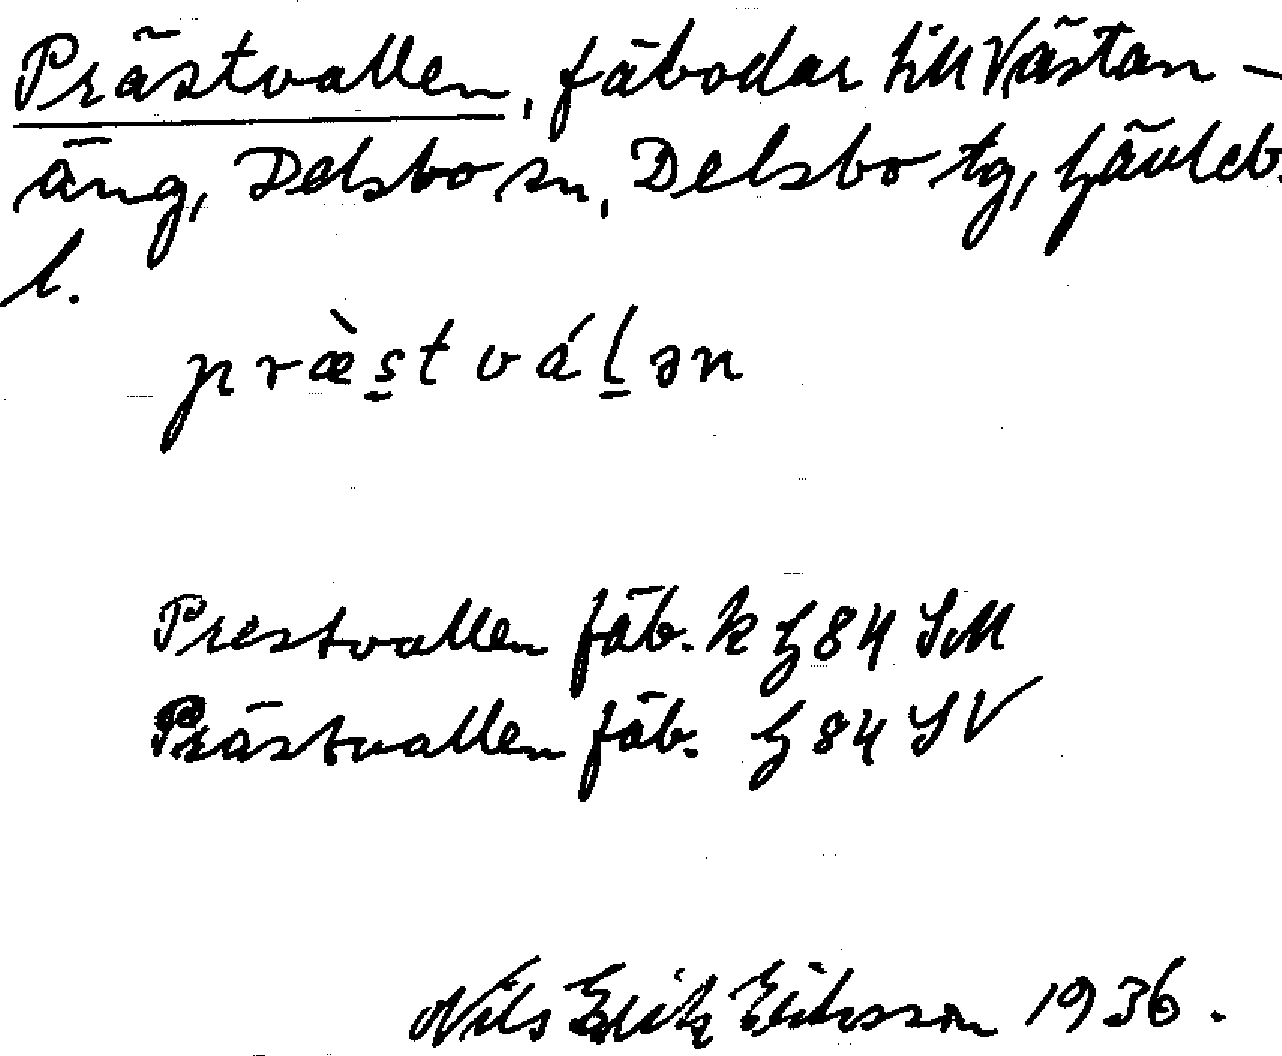 Prästvallen, fäbodar till Västan-
äng, Delsbo sn, Delsbo tg, Gävleb.
l.
præ̀s̱tváḻən
Prestvallen fäb. k G 84 SM
Prästvallen fäb. G 84 SV
Nils Erik Eriksson 1936.